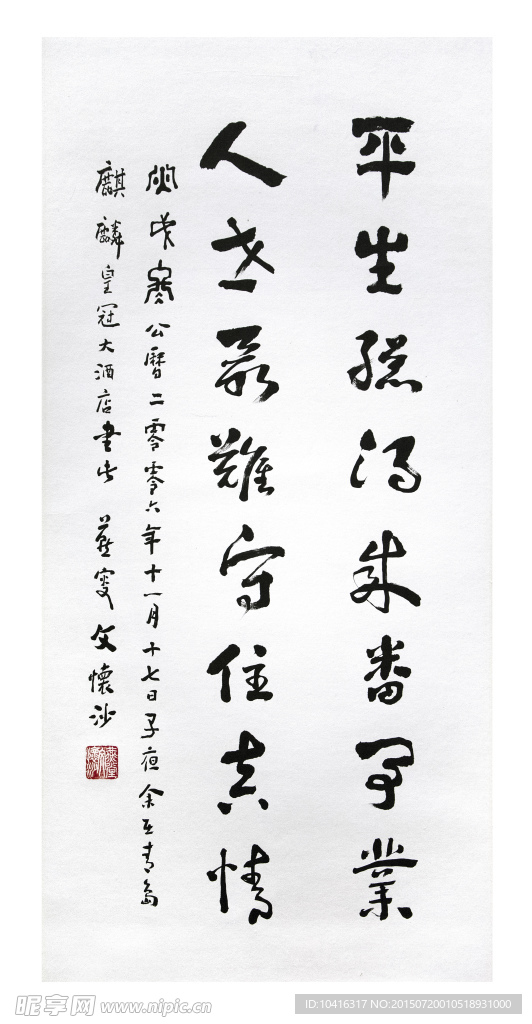 平生總得成番事業
人世最難守住真情
公曆二零零六年十一月十七日子夜余在青島
麒麟皇冠大酒店書此 燕叟文懷沙
昵享网 www.nipic.cn
ID:10416317 NO:20150720010518931000